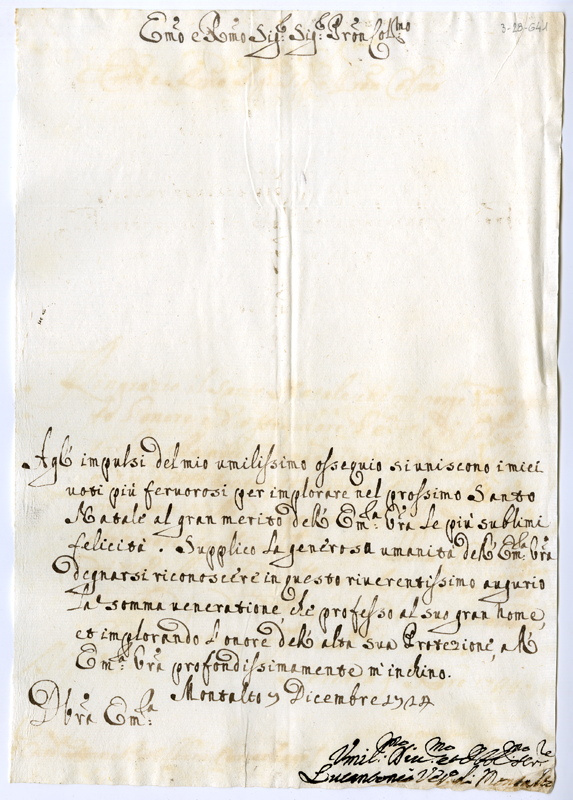 Em̃o e Rm̃o Sig:r Sig:r Pron̄ Coll:mo
3-28-641
Agl' impulsi del mio umilissimo ossequio si uniscono i miei
voti più fervorosi per implorare nel prossimo Santo
Natale al gran merito dell' Em:la Vr̃a le più sublimi
felicità. Supplico la generosa umanità dell' Em:la Vr̃a
degnarsi riconoscere in questo riverentissimo augurio
la somma veneratione, che professo al suo gran nome,
et implorando l'onore dell' alta sua Protezione, all'
Em:a Vr̃a profondissimamente m'inchino.
Montalto 9 Dicembre 1724
D Vr̃a Em:la
Umil:mo Div:mo et Obl:mo Ser:re
Lucantonio Ves:o di Montalto